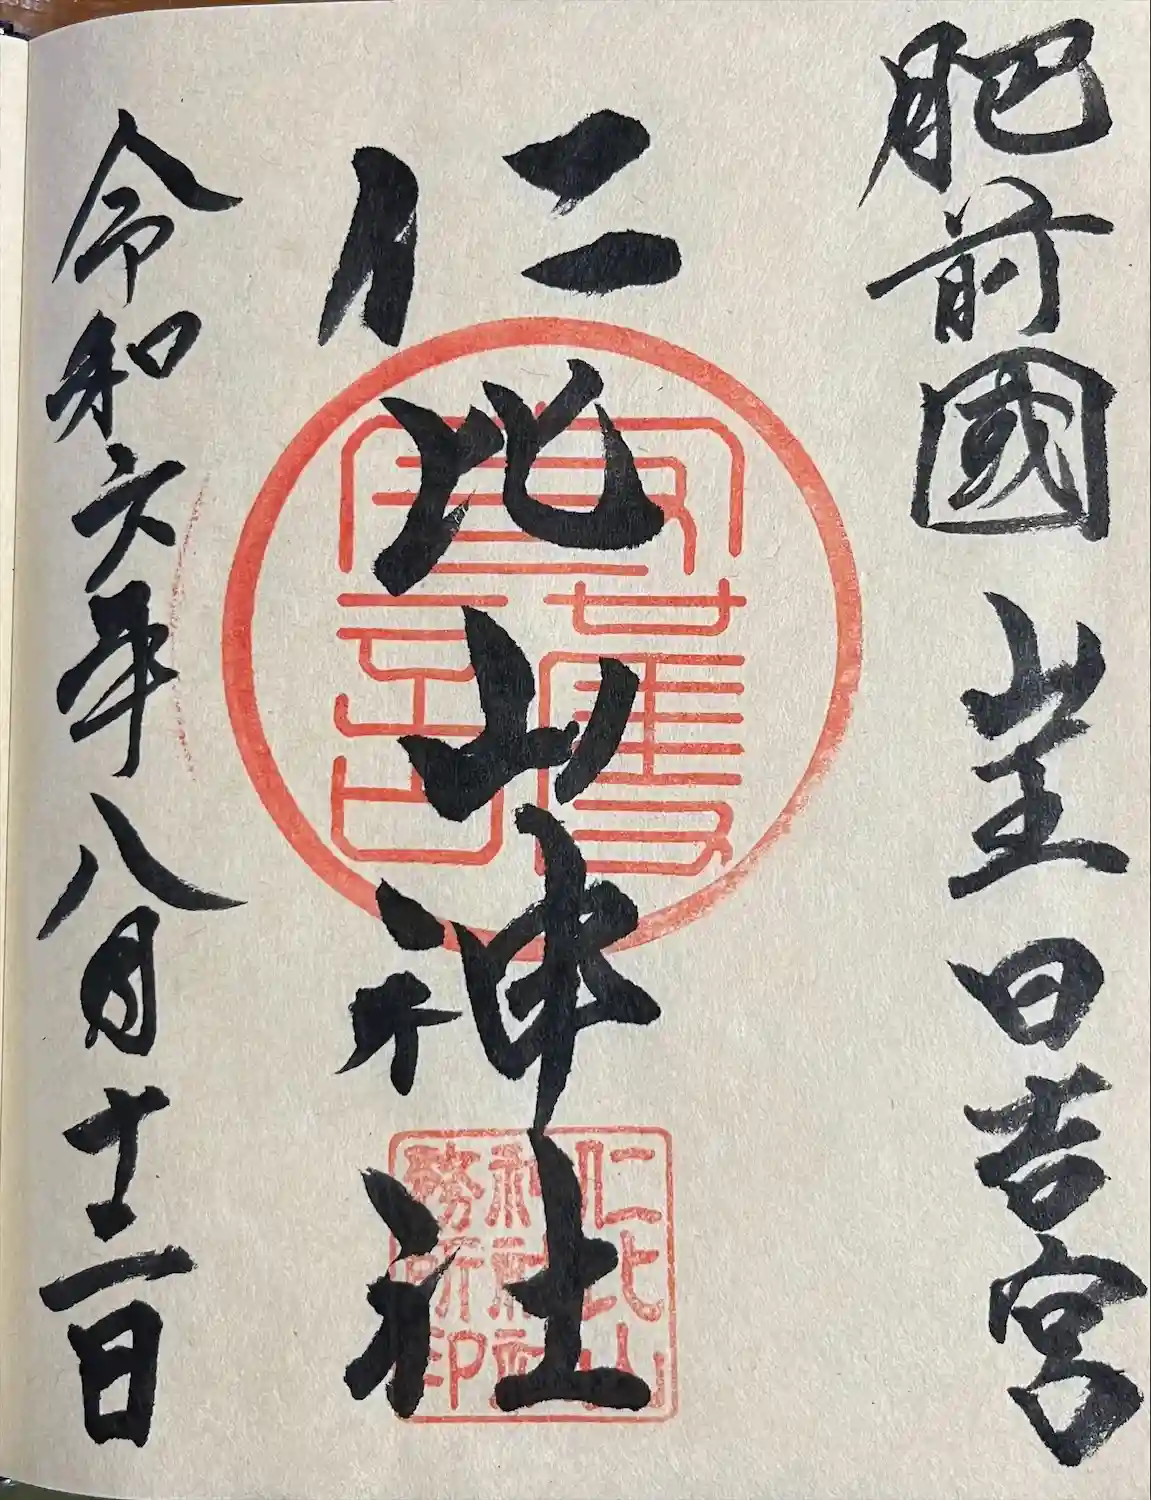 肥前國 山王日吉宮
仁比山神社
令和六年八月十二日
仁比山
神社社
務所印